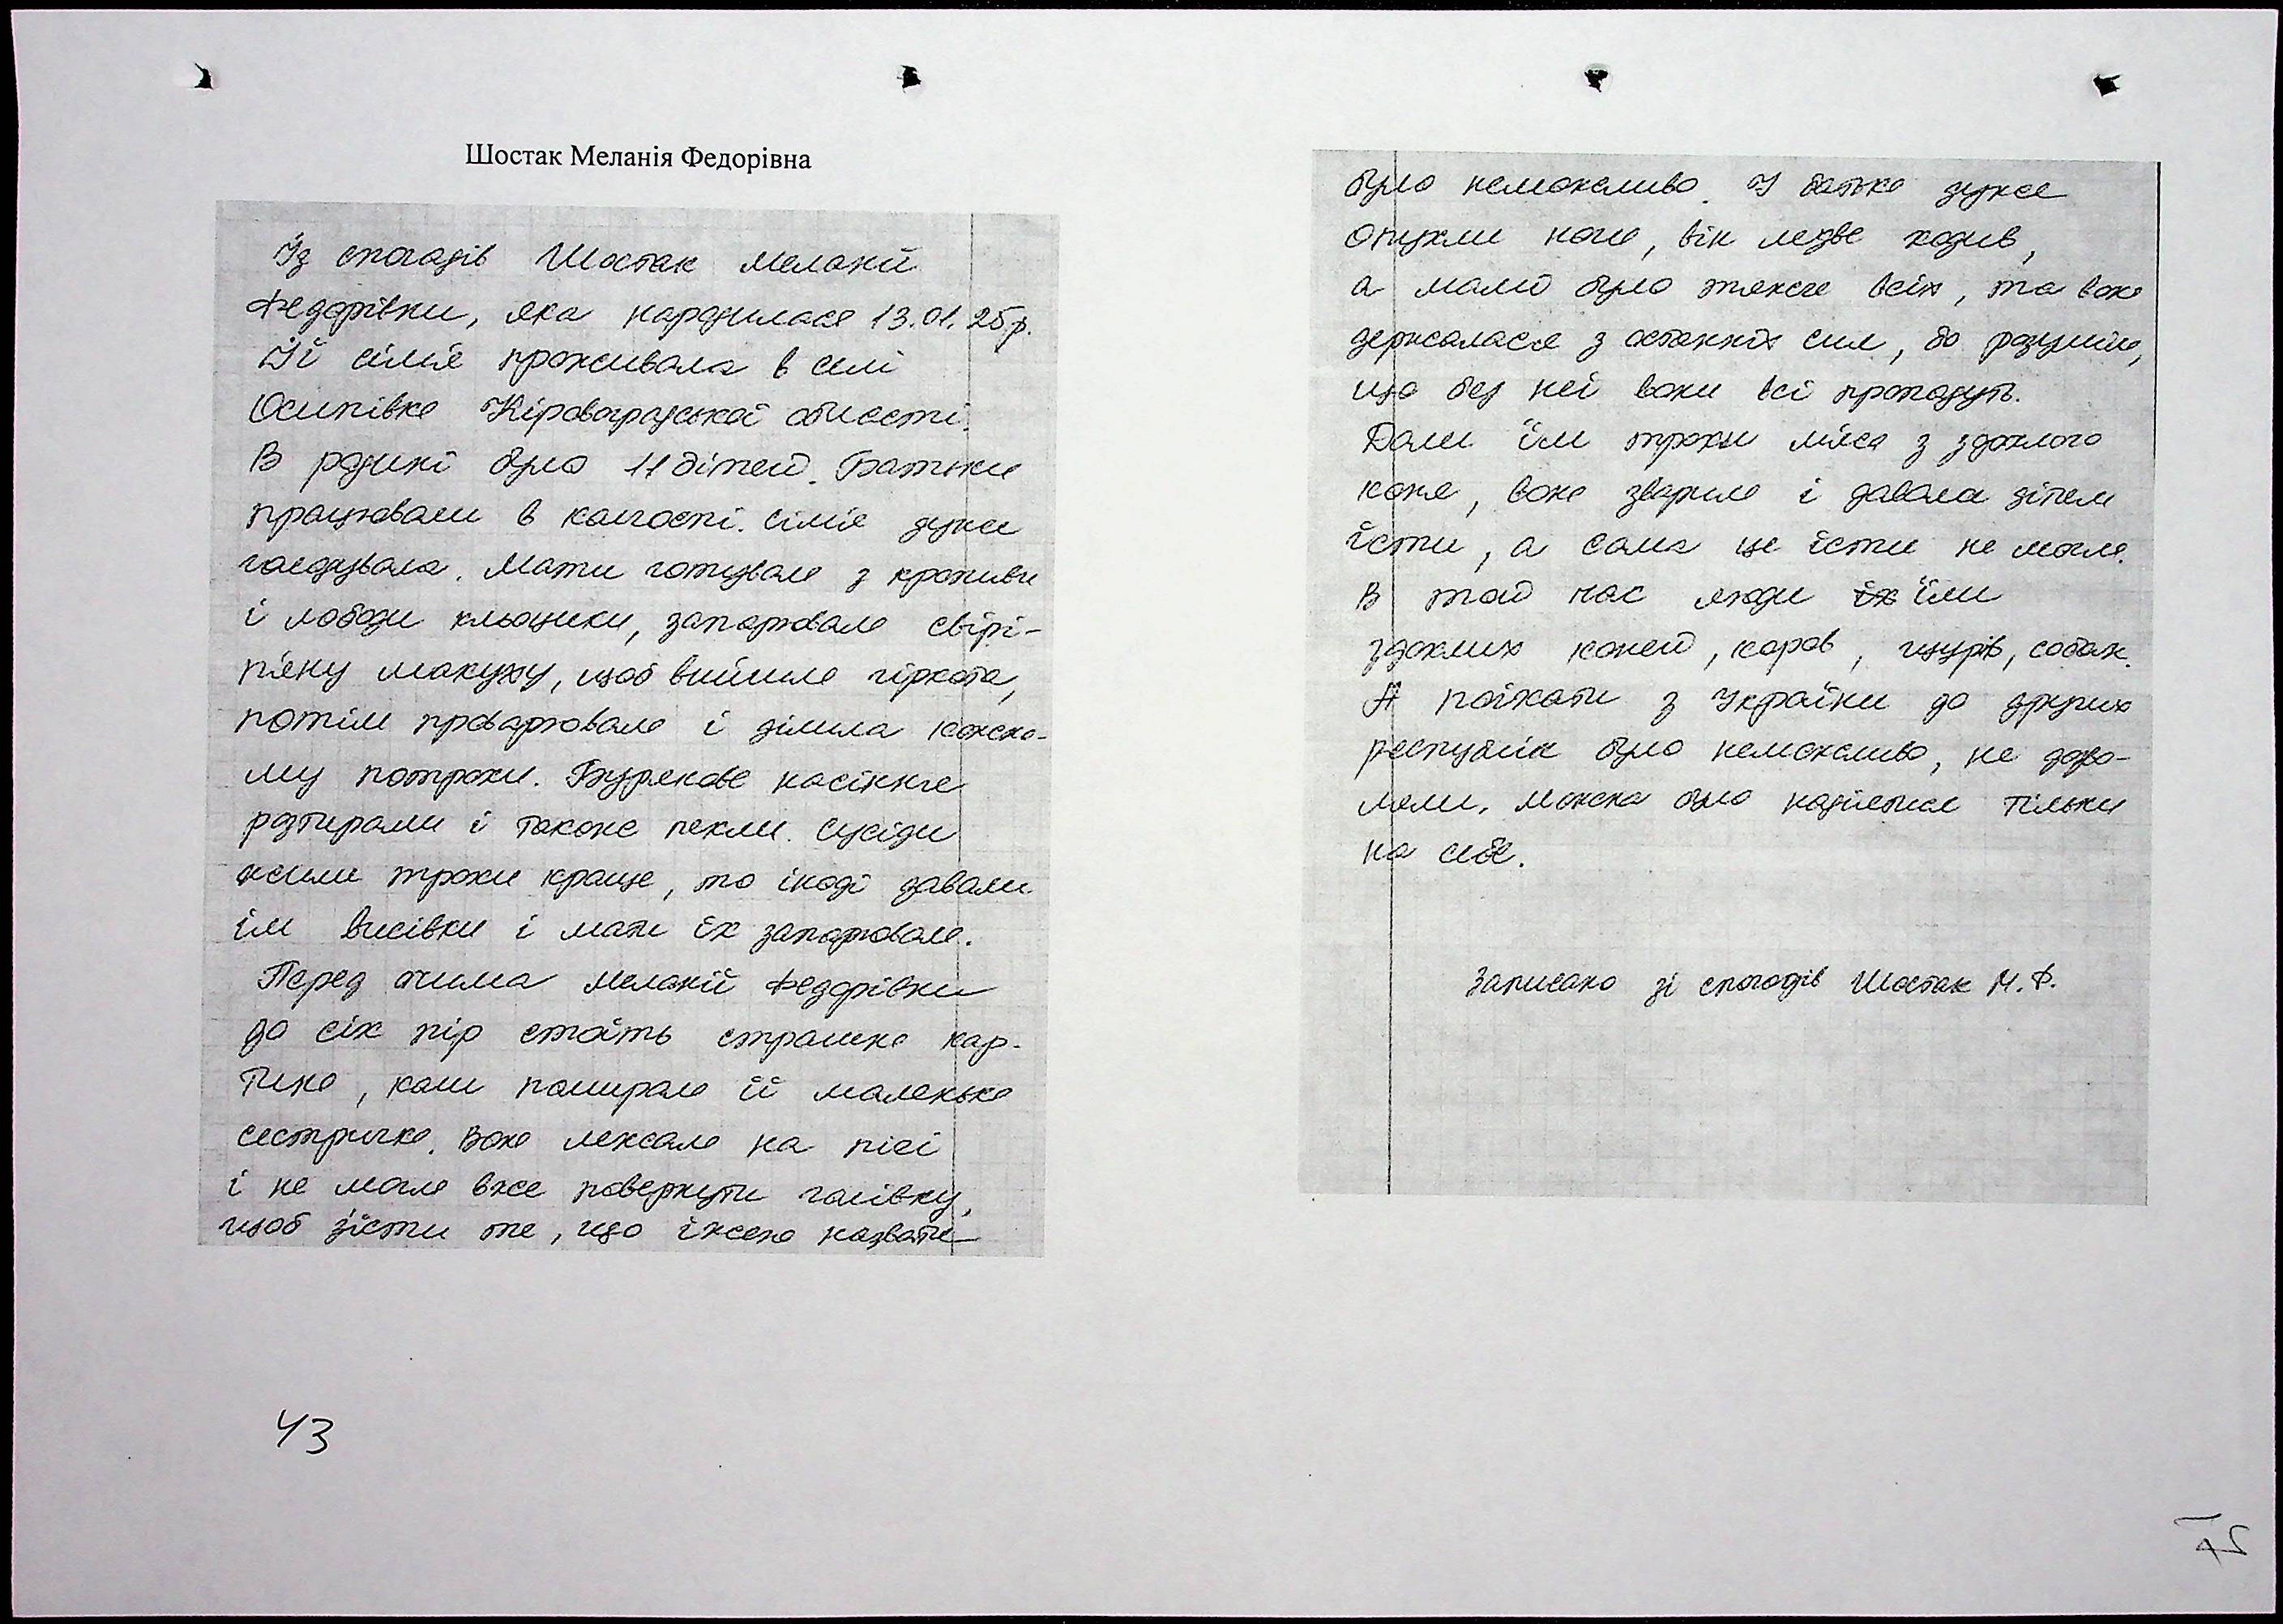 Шостак Меланія Федорівна
Із спогадів Шостак Меланії
Федорівни, яка народилася 13.01.25р.
Її сім'я проживала в селі
Осипівка Кіровоградської області.
В родині було 11 дітей. Батьки
працювали в колгоспі. Сім'я дуже
голодувала. Мати готувала з кропиви
і лободи кльоцики, запарювала свірі-
п'яну макуху, щоб вийшла гіркота,
потім проварювала і ділила кожно-
му потрохи. Бурякове насіння
розтирали і також пекли. Сусіди
жили трохи краще, то іноді давали
їм висівки і мати їх запарювала.
Перед очима Меланії Федорівни
до сіх пір стоїть страшна кар-
тина, коли помирала її маленька
сестричка. Вона лежала на пічі
і не могла вже повернути голівку,
щоб з'їсти те, що їжею назвати
було неможливо. У батька дуже
опухли ноги, він ледве ходив,
а мамі було тяжче всіх, та вона
держалася з останніх сил, бо розуміла,
що без неї вони всі пропадуть.
Дали їм трохи м'яса з здохлого
коня, вона зварила і давала дітям
їсти, а сама це їсти не могла.
В той час люди їх їли
здохлих коней, коров, щурів, собак.
А поїхати з України до других
республік було неможливо, не дозво-
ляли, можна було надіятися тільки
на себе.
Записано зі спогадів Шостак М.Ф.
43